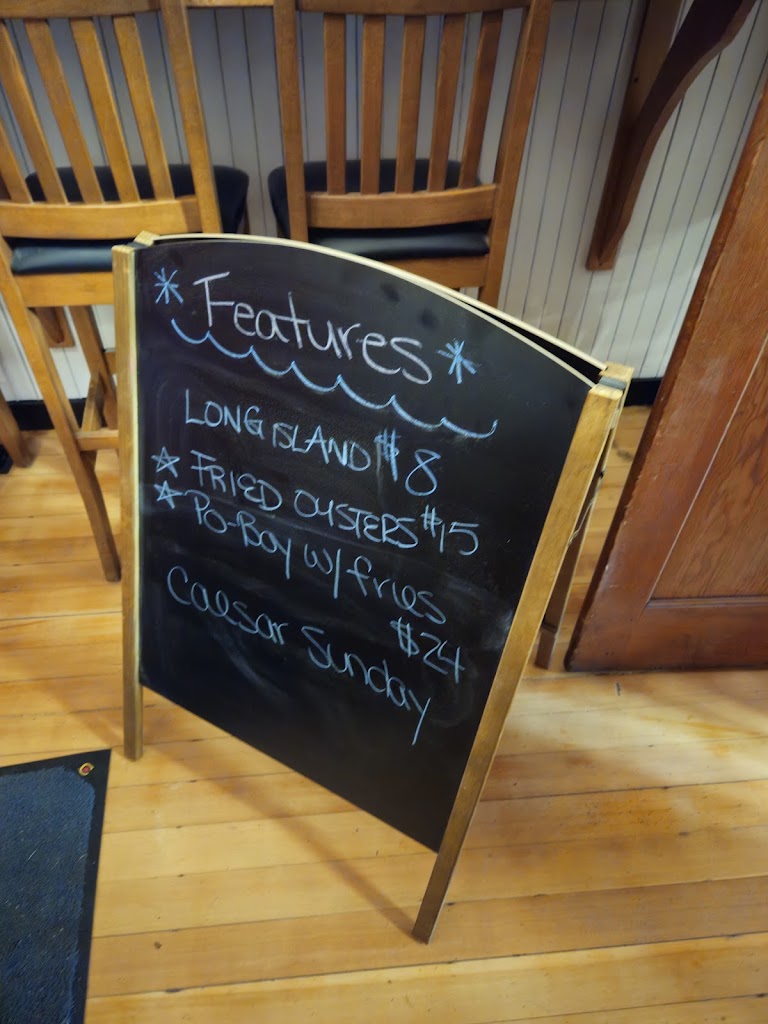 * Features *
LONG ISLAND $8
☆ FRIED OYSTERS $15
☆ PO-BOY w/ fries
$24
Caesar Sunday